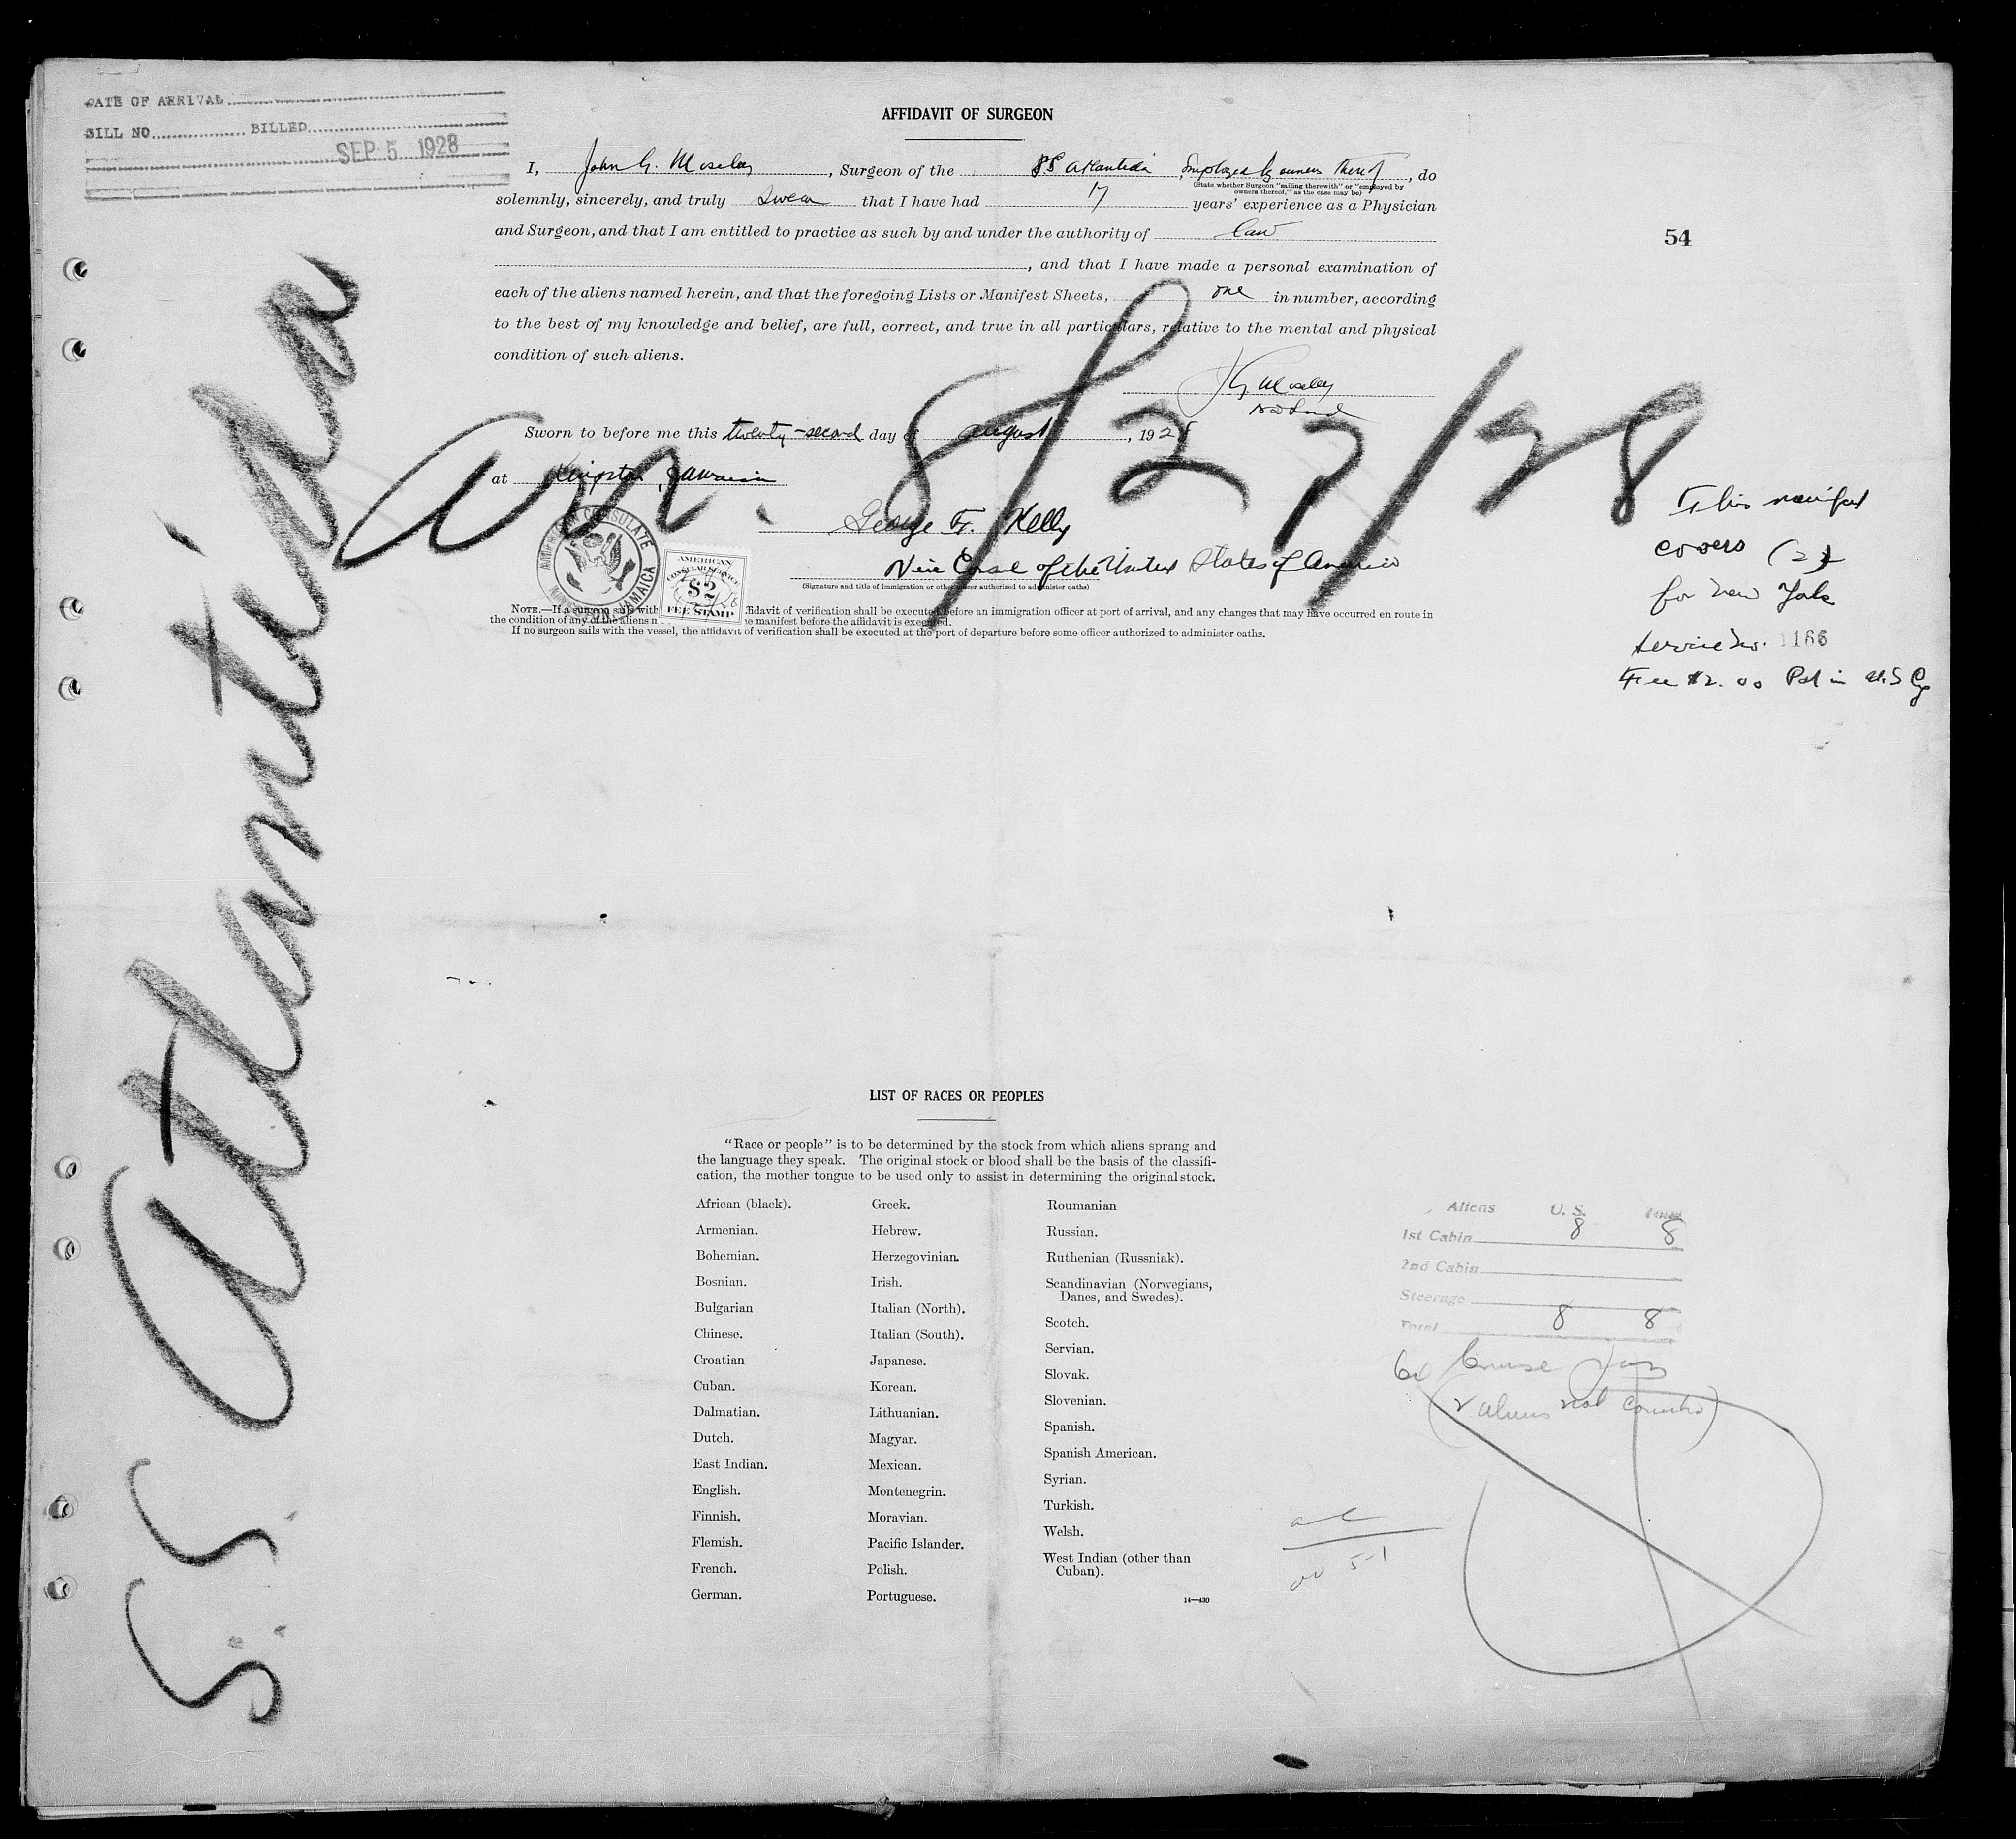 DATE OF ARRIVAL
BILL NO. BILLED
SEP 5 1928
AFFIDAVIT OF SURGEON
I, John G. Moseley, Surgeon of the SS Atlantida, Employed by owners thereof, do
(State whether Surgeon "sailing therewith" or "employed by
owners thereof," as the case may be)
solemnly, sincerely, and truly swear that I have had 17 years' experience as a Physician
and Surgeon, and that I am entitled to practice as such by and under the authority of law
54
, and that I have made a personal examination of
each of the aliens named herein, and that the foregoing Lists or Manifest Sheets, one in number, according
to the best of my knowledge and belief, are full, correct, and true in all particulars, relative to the mental and physical
condition of such aliens.
J G. Moseley
Sworn to before me this twenty-second day of August, 1928
at Kingston, Jamaica
An. 8/27/28
S.S. Atlantida
George F. Kelly
Vice Consul of the United States of America
(Signature and title of immigration or other officer authorized to administer oaths)
AMERICAN CONSULATE
KINGSTON JAMAICA
AMERICAN
CONSULAR SERVICE
$2
FEE STAMP
This manifest
covers (2)
for New York
Service No. 1166
Fee $2.00 Pd in U.S Cy
NOTE.—If a surgeon sails with affidavit of verification shall be executed before an immigration officer at port of arrival, and any changes that may have occurred en route in
the condition of any of the aliens n e manifest before the affidavit is executed.
If no surgeon sails with the vessel, the affidavit of verification shall be executed at the port of departure before some officer authorized to administer oaths.
LIST OF RACES OR PEOPLES
"Race or people" is to be determined by the stock from which aliens sprang and
the language they speak. The original stock or blood shall be the basis of the classifi-
cation, the mother tongue to be used only to assist in determining the original stock.
African (black).
Armenian.
Bohemian.
Bosnian.
Bulgarian
Chinese.
Croatian
Cuban.
Dalmatian.
Dutch.
East Indian.
English.
Finnish.
Flemish.
French.
German.
Greek.
Hebrew.
Herzegovinian.
Irish.
Italian (North).
Italian (South).
Japanese.
Korean.
Lithuanian.
Magyar.
Mexican.
Montenegrin.
Moravian.
Pacific Islander.
Polish.
Portuguese.
Roumanian
Russian.
Ruthenian (Russniak).
Scandinavian (Norwegians,
Danes, and Swedes).
Scotch.
Servian.
Slovak.
Slovenian.
Spanish.
Spanish American.
Syrian.
Turkish.
Welsh.
West Indian (other than
Cuban).
14—430
Aliens U. S. Total
1st Cabin 8 8
2nd Cabin
Steerage
Total 8 8
Cruise
(2 aliens not counted)